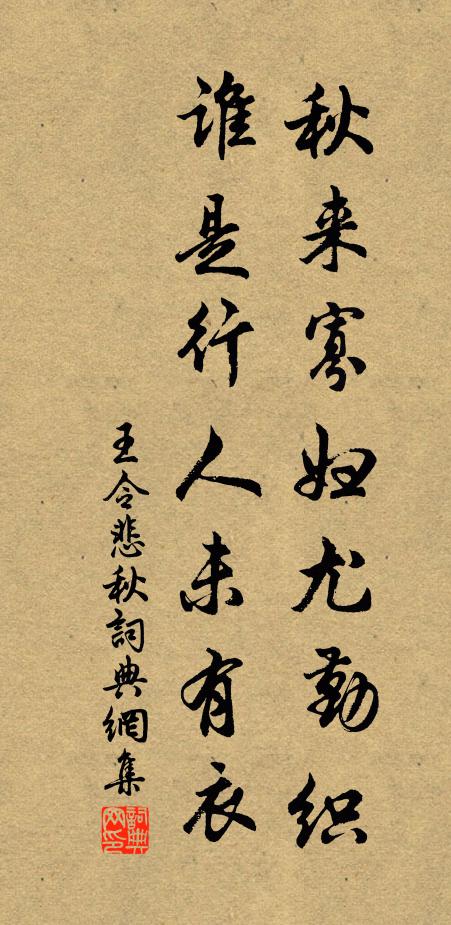 秋来寡妇尤勤织
谁是行人未有衣
王令悲秋詞典網集
詞典网印